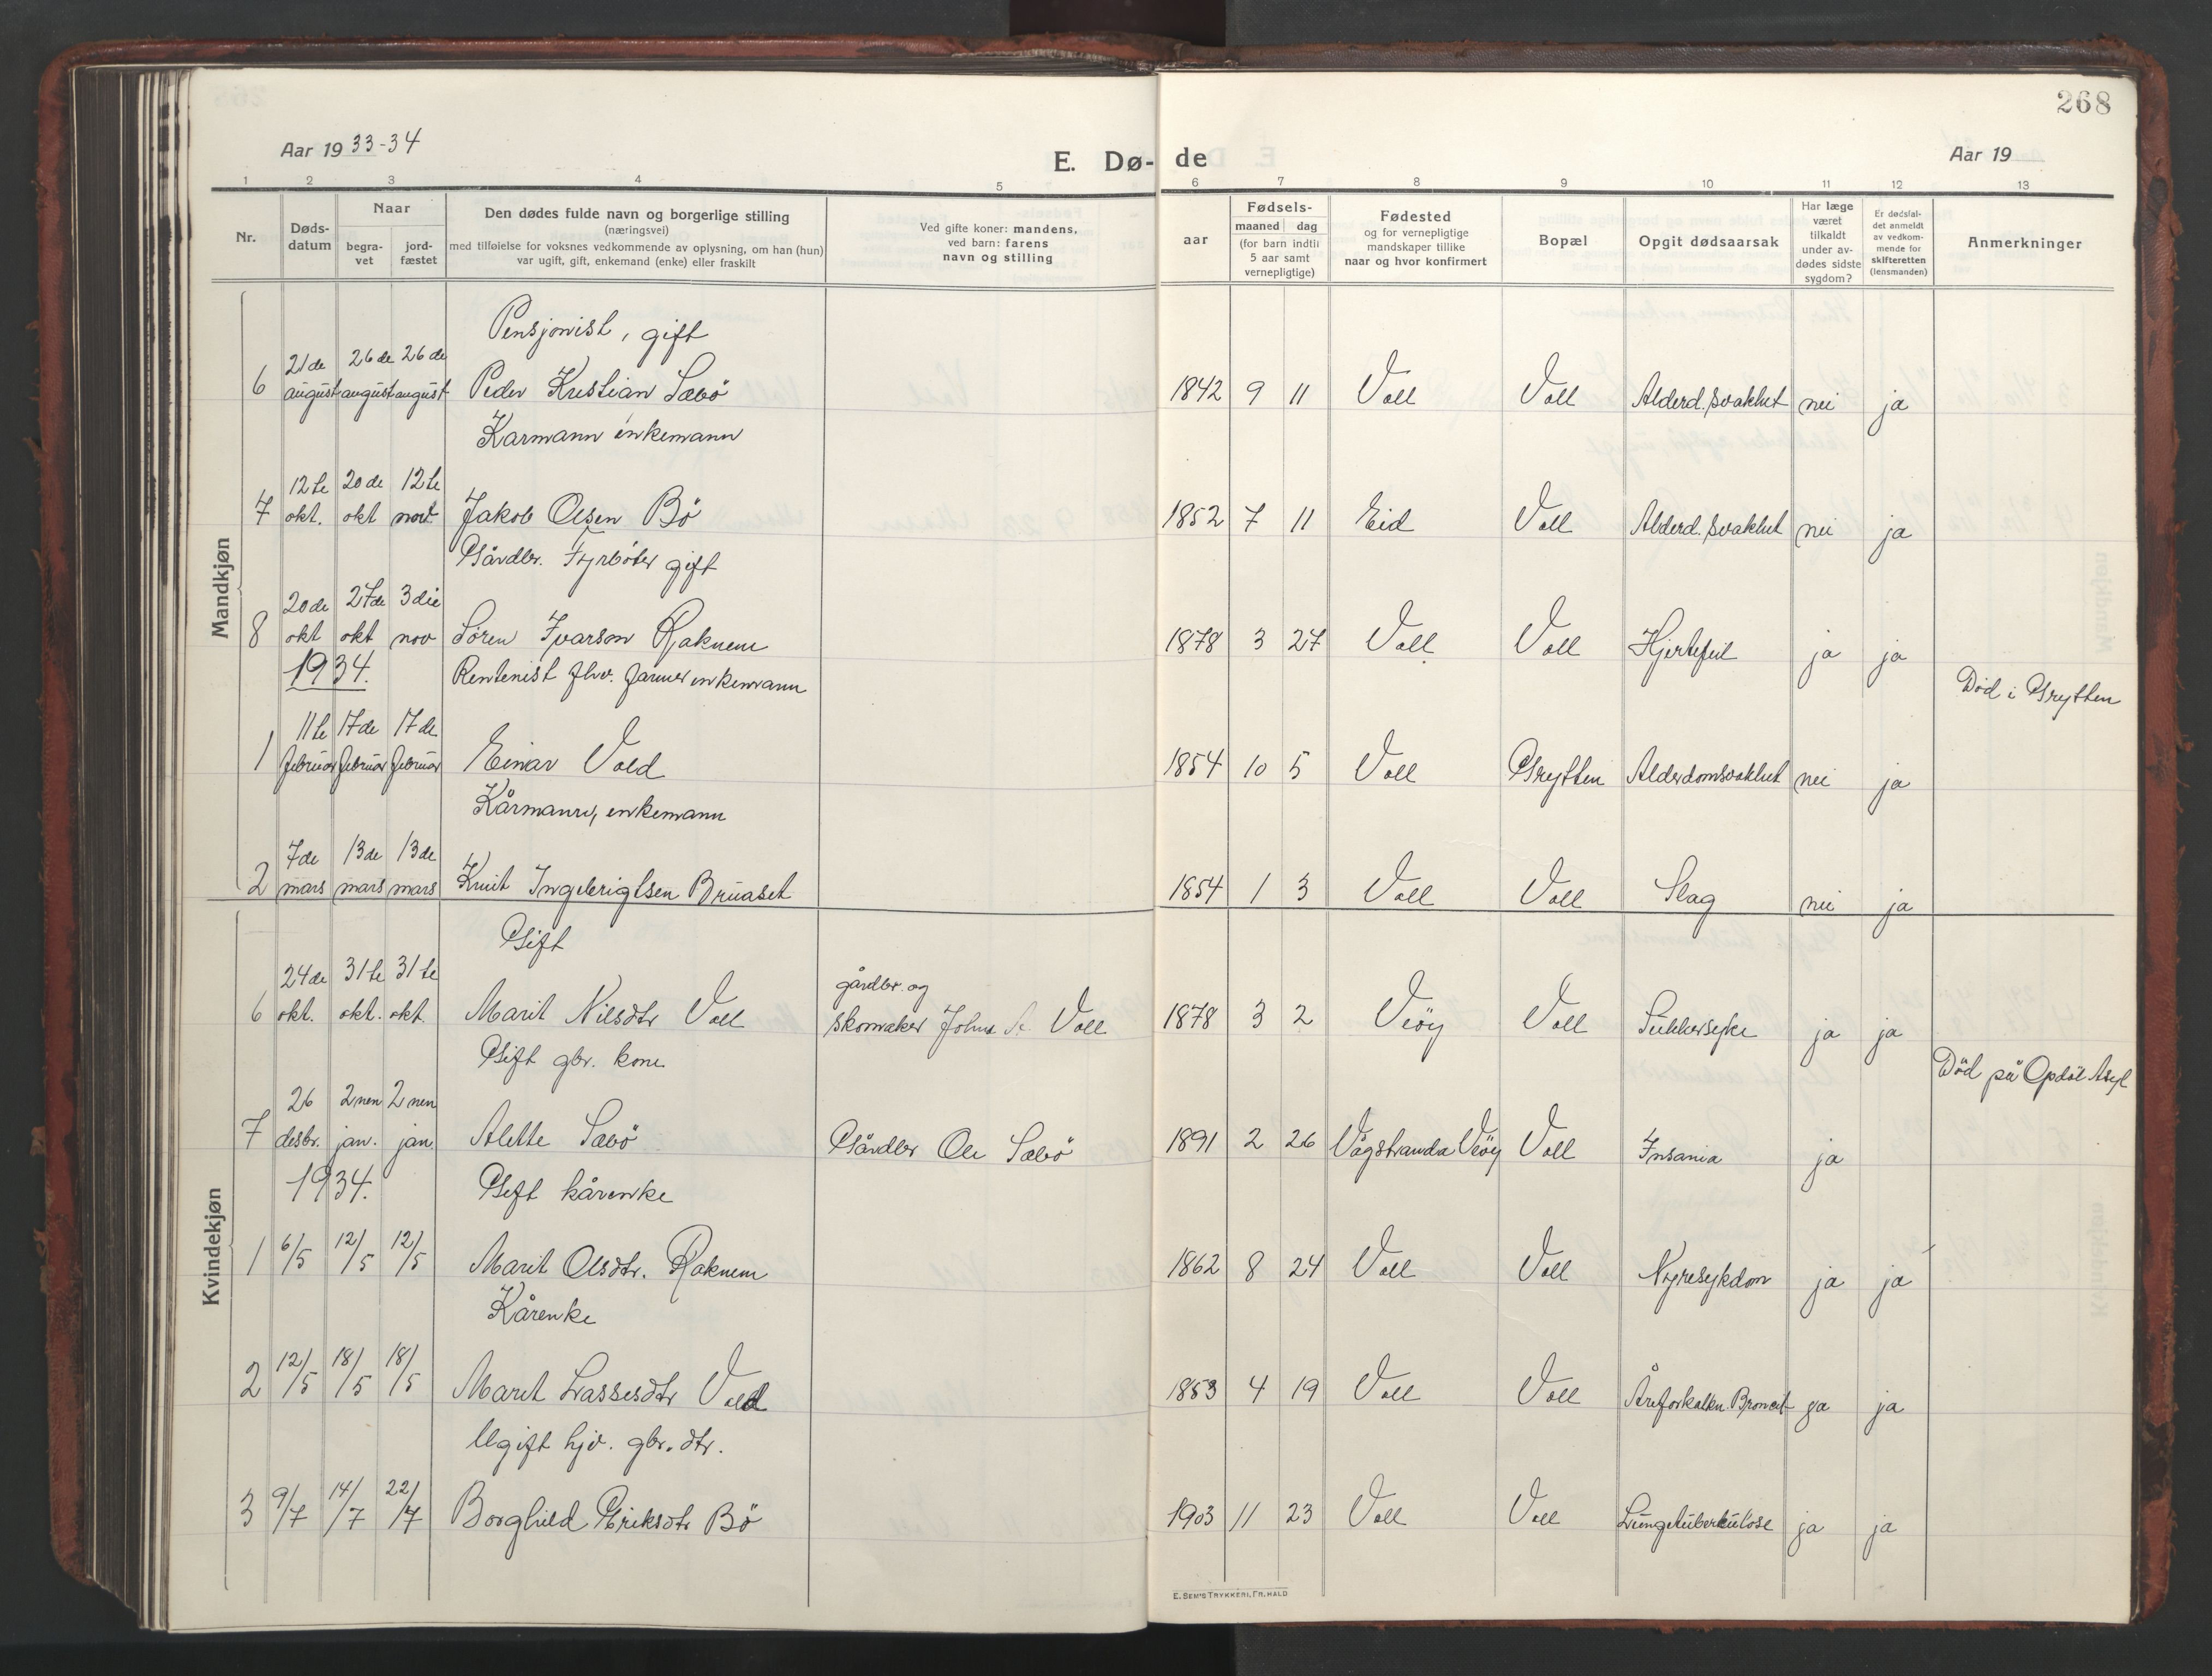 268
Aar 1933-34
E. Dø-
de
Aar 19
1 2 3 4 5 6 7 8 9 10 11 12 13
Nr.
Døds-
datum
Naar
begra-
vet
jord-
fæstet
Den dødes fulde navn og borgerlige stilling
(næringsvei)
med tilføielse for voksnes vedkommende av oplysning, om han (hun)
var ugift, gift, enkemand (enke) eller fraskilt
Ved gifte koner: mandens,
ved barn: farens
navn og stilling
aar
Fødsels-
maaned dag
(for barn indtil
5 aar samt
vernepligtige)
Fødested
og for vernepligtige
mandskaper tillike
naar og hvor konfirmert
Bopæl
Opgit dødsaarsak
Har læge
været
tilkaldt
under av-
dødes sidste
sygdom?
Er dødsfal-
det anmeldt
av vedkom-
mende for
skifteretten
(lensmanden)
Anmerkninger
Mandkjøn
Pensjonist, gift
21de 26de 26de
6 august august august Peder Kristian Sæbö 1842 9 11 Voll Voll Alderd.svakhet nei ja
Karmann enkemann
12te 20de 12te
7 okt. okt nov. Jakob Olsen Bö 1852 7 11 Eid Voll Alderd.svakhet nei ja
Gårdbr. Fyrböter gift
20de 27de 3die
8 okt okt nov Sören Ivarson Raknem 1878 3 27 Voll Voll Hjertefeil ja ja
1934. Rentenist fhv. farmer enkemann
Död i Grytten
11te 17de 17de
1 februar februar februar Einar Vold 1854 10 5 Voll Grytten Alderdomsvakhet nei ja
Kårmann, enkemann
7de 13de 13de
2 mars mars mars Knut Ingebrigtsen Bruaset 1854 1 3 Voll Voll Slag nei ja
Kvindekjøn
Gift
24de 31te 31te
gårdbr. og
6 okt. okt. okt. Marit Nilsdtr Voll skomaker Johns Voll 1878 3 2 Veöy Voll Sukkersyke ja ja
Gift gbr. kone
Död på Opdöl Asyl
26 2nen 2nen
7 desbr. jan. jan. Alette Sæbö Gårdbr Ole Sæbö 1891 2 26 Vågstranda Veöy Voll Insania ja
1934. Gift kårenke
1 6/5 12/5 12/5 Marit Olsdtr. Raknem 1862 8 24 Voll Voll Nyresykdom ja ja
Kårenke
2 12/5 18/5 18/5 Marit Lassesdtr Vold 1853 4 19 Voll Voll Åreforkalkn. ja ja
Ugift hjv. gbr. dtr.
3 9/7 14/7 22/7 Borghild Eriksdtr Bö 1903 11 23 Voll Voll Lungetuberkulose ja ja
E. SEM'S TRYKKERI, FR. HALD